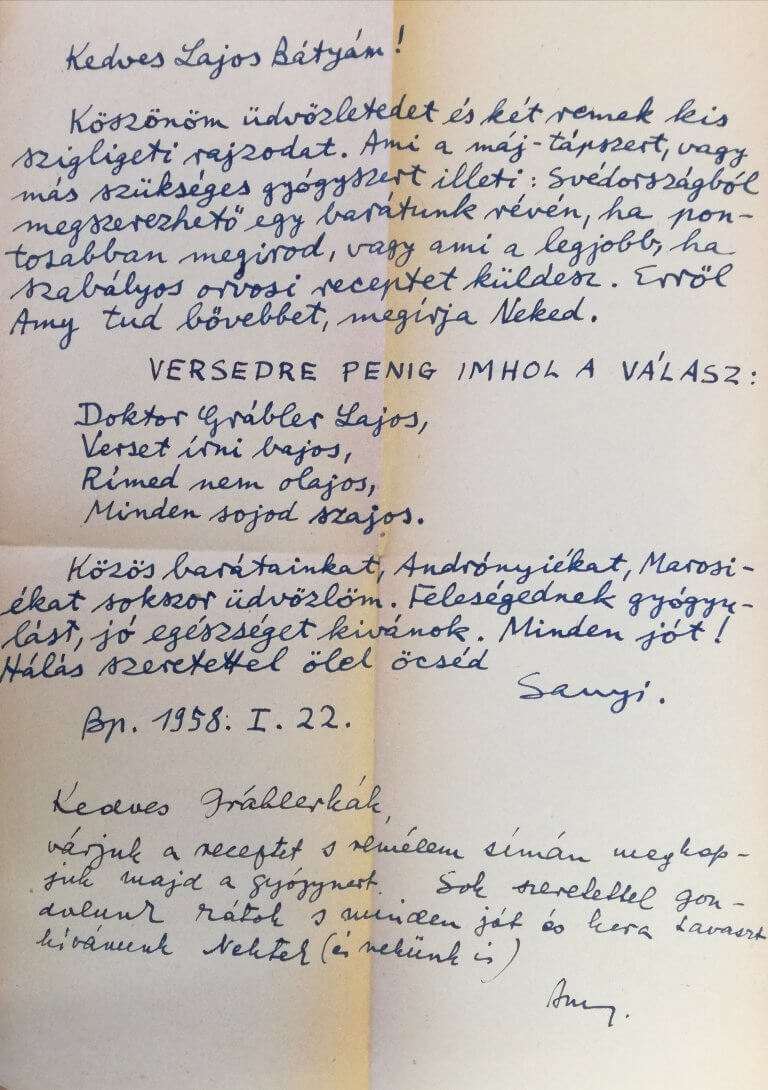 Kedves Lajos Bátyám!
Köszönöm üdvözletedet és két remek kis
szigligeti rajzodat. Ami a máj-tápszert, vagy
más szükséges gyógyszert illeti: Svédországból
megszerezhető egy barátunk révén, ha pon-
tosabban megirod, vagy ami a legjobb, ha
szabályos orvosi receptet küldesz. Erről
Amy tud bővebbet, megírja Neked.
VERSEDRE PENIG IMHOL A VÁLASZ:
Doktor Grábler Lajos,
Verset írni bajos,
Rímed nem olajos,
Minden sojod szajos.
Közös barátainkat, Andrónyiékat, Marosi-
ékat sokszor üdvözlöm. Feleségednek gyógyu-
lást, jó egészséget kivánok. Minden jót!
Hálás szeretettel ölel öcséd
Sanyi.
Bp. 1958. I. 22.
Kedves Gráblerkák,
várjuk a receptet s remélem simán megkap-
juk majd a gyógyszert. Sok szeretettel gon-
dolunk rátok s minden jót és kora tavaszt
kívánunk Nektek (és nekünk is)
Amy.